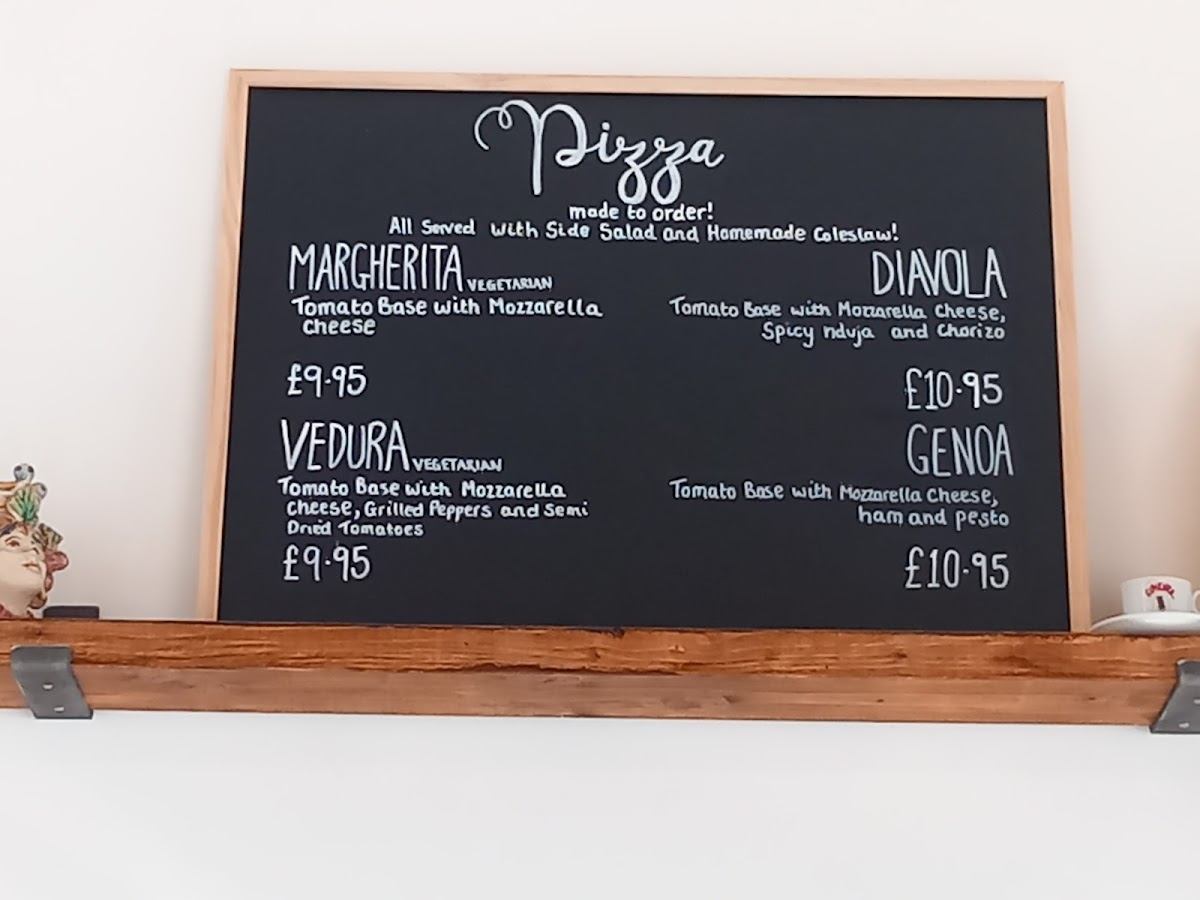 Pizza
made to order!
All Served with Side Salad and Homemade Coleslaw!
MARGHERITA VEGETARIAN
Tomato Base with Mozzarella
Cheese
£9.95
DIAVOLA
Tomato Base with Mozzarella Cheese,
Spicy nduja and Chorizo
£10.95
VEDURA VEGETARIAN
Tomato Base with Mozzarella
Cheese, Grilled Peppers and Semi
Dried Tomatoes
£9.95
GENOA
Tomato Base with Mozzarella Cheese,
ham and pesto
£10.95